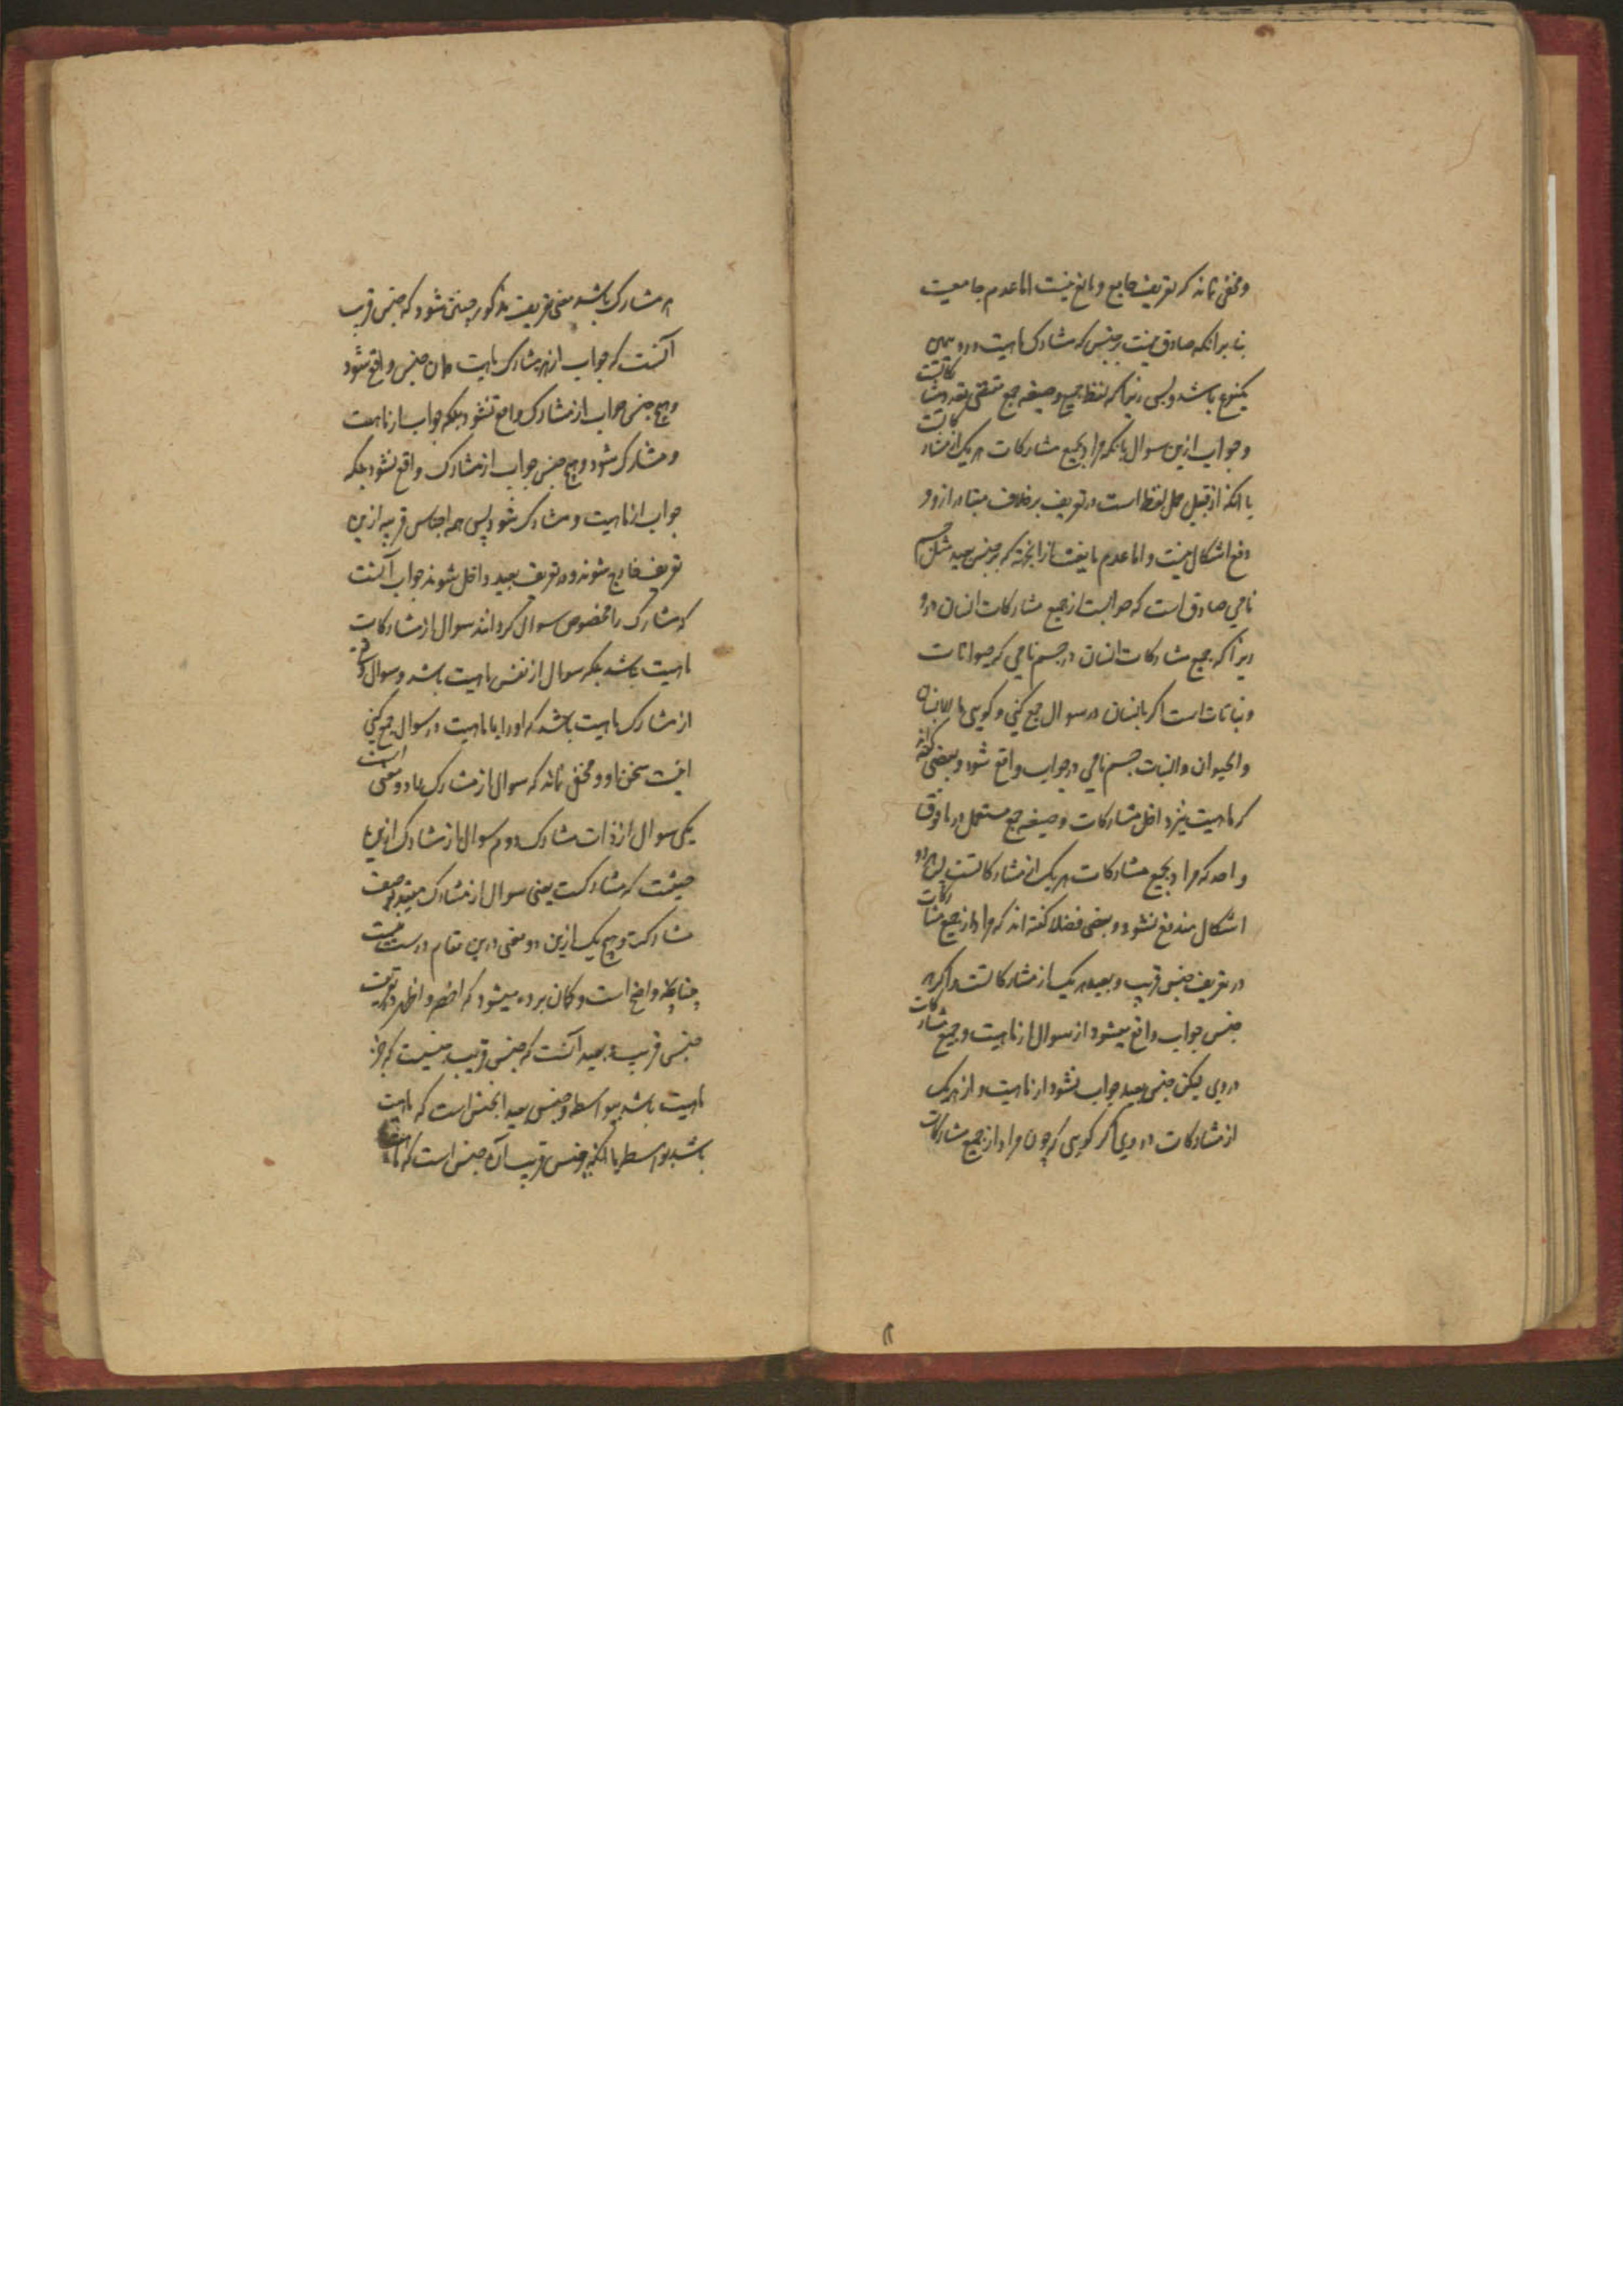 و مخفی نماند که تعریف جامع و مانع نیست اما عدم جامعیت
بنا بر آنکه صادق نیست بر جنس که مشارک ماهیت درو همین
یکنوع باشد و بس زیرا که لفظ جمیع و صیغه جمع مقتضی تعدد مشارکاتست
و جواب ازین سوال بانکه مراد بجمیع مشارکات هر یک از مشارکاتست
یا انکه از قبیل حمل لفظ است در تعریف بر خلاف متبادر ازو و
دفع اشکال نیست و اما عدم مانعیت از انجهة که بر جنس بعید مثل جسم
نامی صادق است که جوابست از جمیع مشارکات انسان درو
زیرا که جمیع مشارکات انسان در جسم نامی که حیوانات
و نباتات است اگر بانسان در سوال جمع کنی و کویی ما الانسان
والحیوان والنبات جسم نامی در جواب واقع شود و بعضی گفته اند
که ماهیت نیز داخل مشارکات و صیغه جمع مستعمل در ما فوق
واحد که مراد بجمیع مشارکات هر یک از مشارکاتست پس هر دو
اشکال مندفع نشود و بعضی فضلا کفته اند که مراد از جمیع مشارکات
در تعریف جنس قریب و بعید هر یک از مشارکاتست و اکر هر
جنس جواب واقع میشود از سوال از ماهیت و جمیع مشارکات
در وی لیکن جنس بعید جواب نشود از ماهیت و از هر یک
از مشارکات در وی اگر کویی که چون مراد از جمیع مشارکات
هر مشارک باشد معنی تعریف مذکور چنین شود که جنس قریب
آنست که جواب از هر مشارک ماهیت همان جنس واقع شود
و هیچ جنس جواب از مشارک واقع نشود بلکه جواب از ماهیت
و مشارک شود و هیچ جنس جواب از مشارک واقع نشود بلکه
جواب از ماهیت و مشارک شود پس همه اجناس قریبه ازین
تعریف خارج شوند و در تعریف بعید داخل شوند جواب آنست
که مشارک را مخصوص سوال کردانند سوال از مشارکات
ماهیت باشد بلکه سوال از نفس ماهیت باشد و سوال
از مشارک ماهیت باشد که او را با ماهیت در سوال جمع کنی
اینست سخن او و مخفی نماند که سوال از مشارک را دو معنی است
یکی سوال از ذات مشارک دوم سوال از مشارک ازین
حیثیت که مشارکست یعنی سوال از مشارک مقید بوصف
مشارکت و هیچ یک ازین دو معنی درین مقام درست نیست
چنانکه واضح است و کمان برده میشود که اخصر و اظهر در تعریف
جنس قریب و بعید آنست که جنس قریب جنسیست که جزء
ماهیت باشد بیواسطه و جنس بعید انجنس است که ماهیت
باشد بواسطه یا انکه جنس قریب آن جنس است که